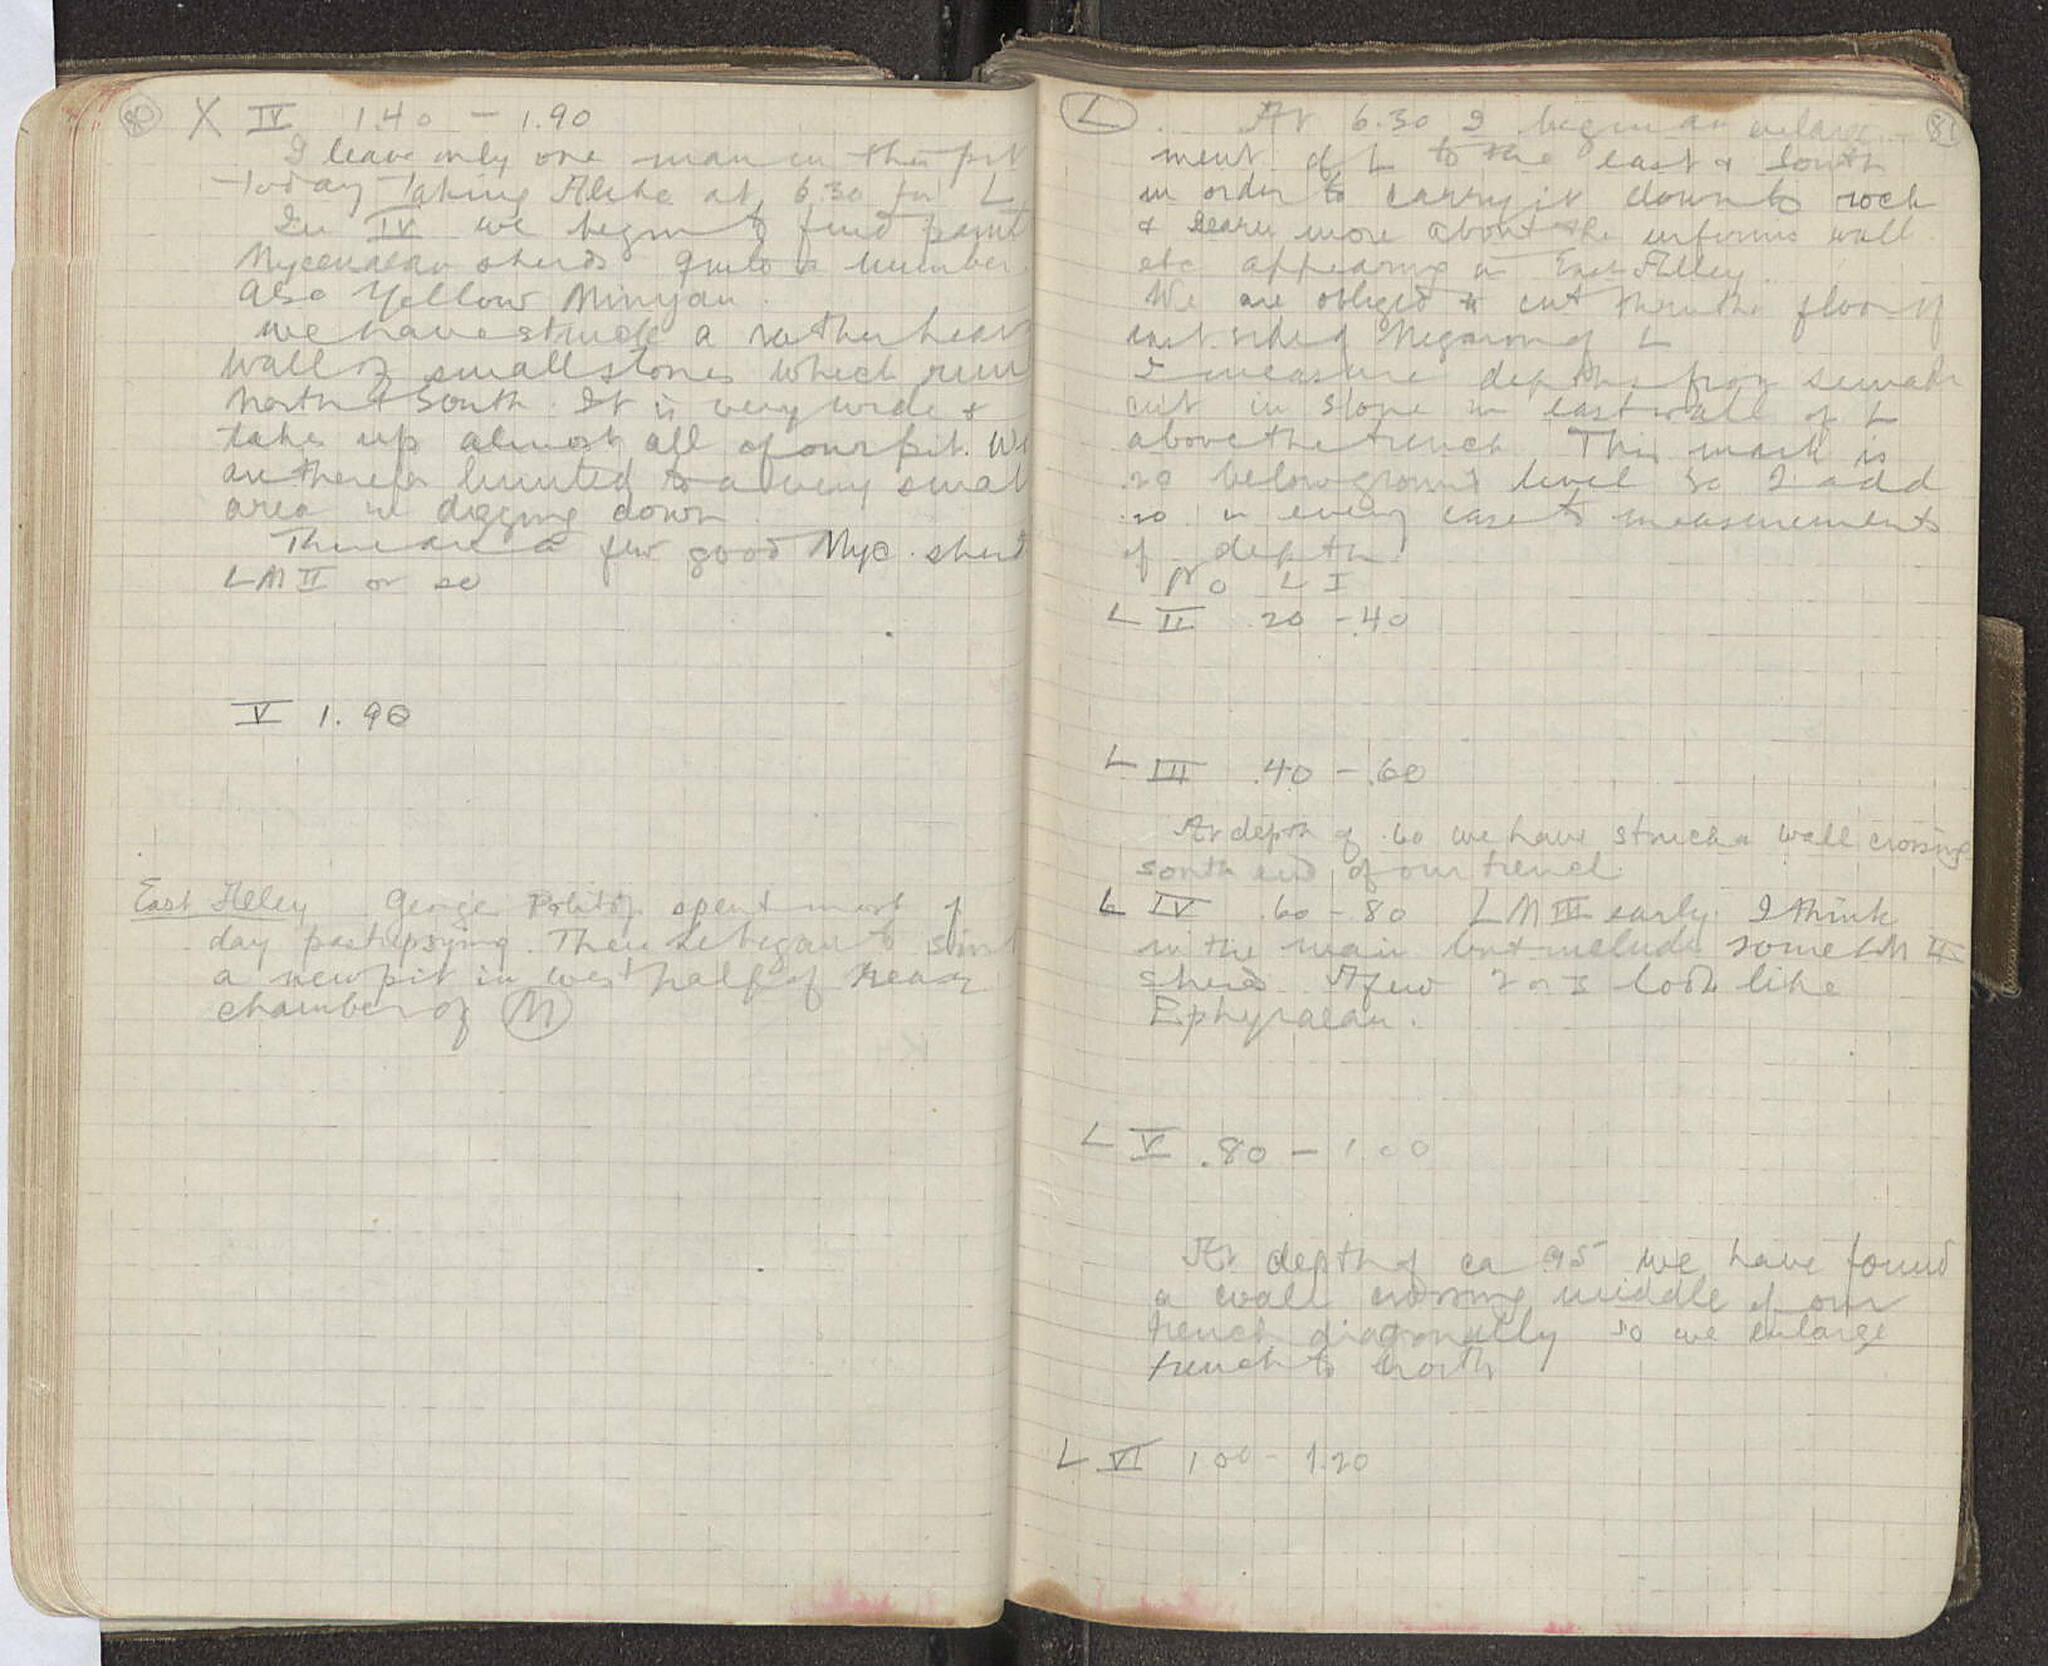 80
X IV 1.40 - 1.90
I leave only one man in this pit
today taking Aleko at 6.30 for L
In IV we begin to find paint
Mycenaean sherds quite a number.
Also Yellow Minyan.
we have struck a rather heavy
wall of small stones which runs
North & South. It is very wide &
takes up almost all of our pit. We
are therefor limited to a very small
area in digging down.
There are a few good Myc. sherds
LM II or so
V 1.90
East Alley George Politop. spent most of
day Then he began to sink
a new pit in west half of rear
chamber of M
81
L At 6.30 I begin an enlarge-
ment of L to the east & South
in order to carry it down to rock
& learn more about the wall
etc appearing in East Alley.
We are obliged to cut thru the floor of
east side of Megaron of L
I measure depths from
cut in stone in east wall of L
above the trench This mark is
.20 below ground level so I add
.20 in every case to measurements
of depth.
No L I
L II .20 - .40
L III .40 - .60
At depth of .60 we have struck a wall crossing
south end of our trench.
L IV .60 - 80 LM III early I think
in the main but include some LM II
sherds. A few 2 or 3 look like
Ephyraean.
L V .80 - 1.00
At depth of ca .95 we have found
a wall crossing middle of our
trench diagonally so we enlarge
trench to North
L VI 1.00 - 1.20